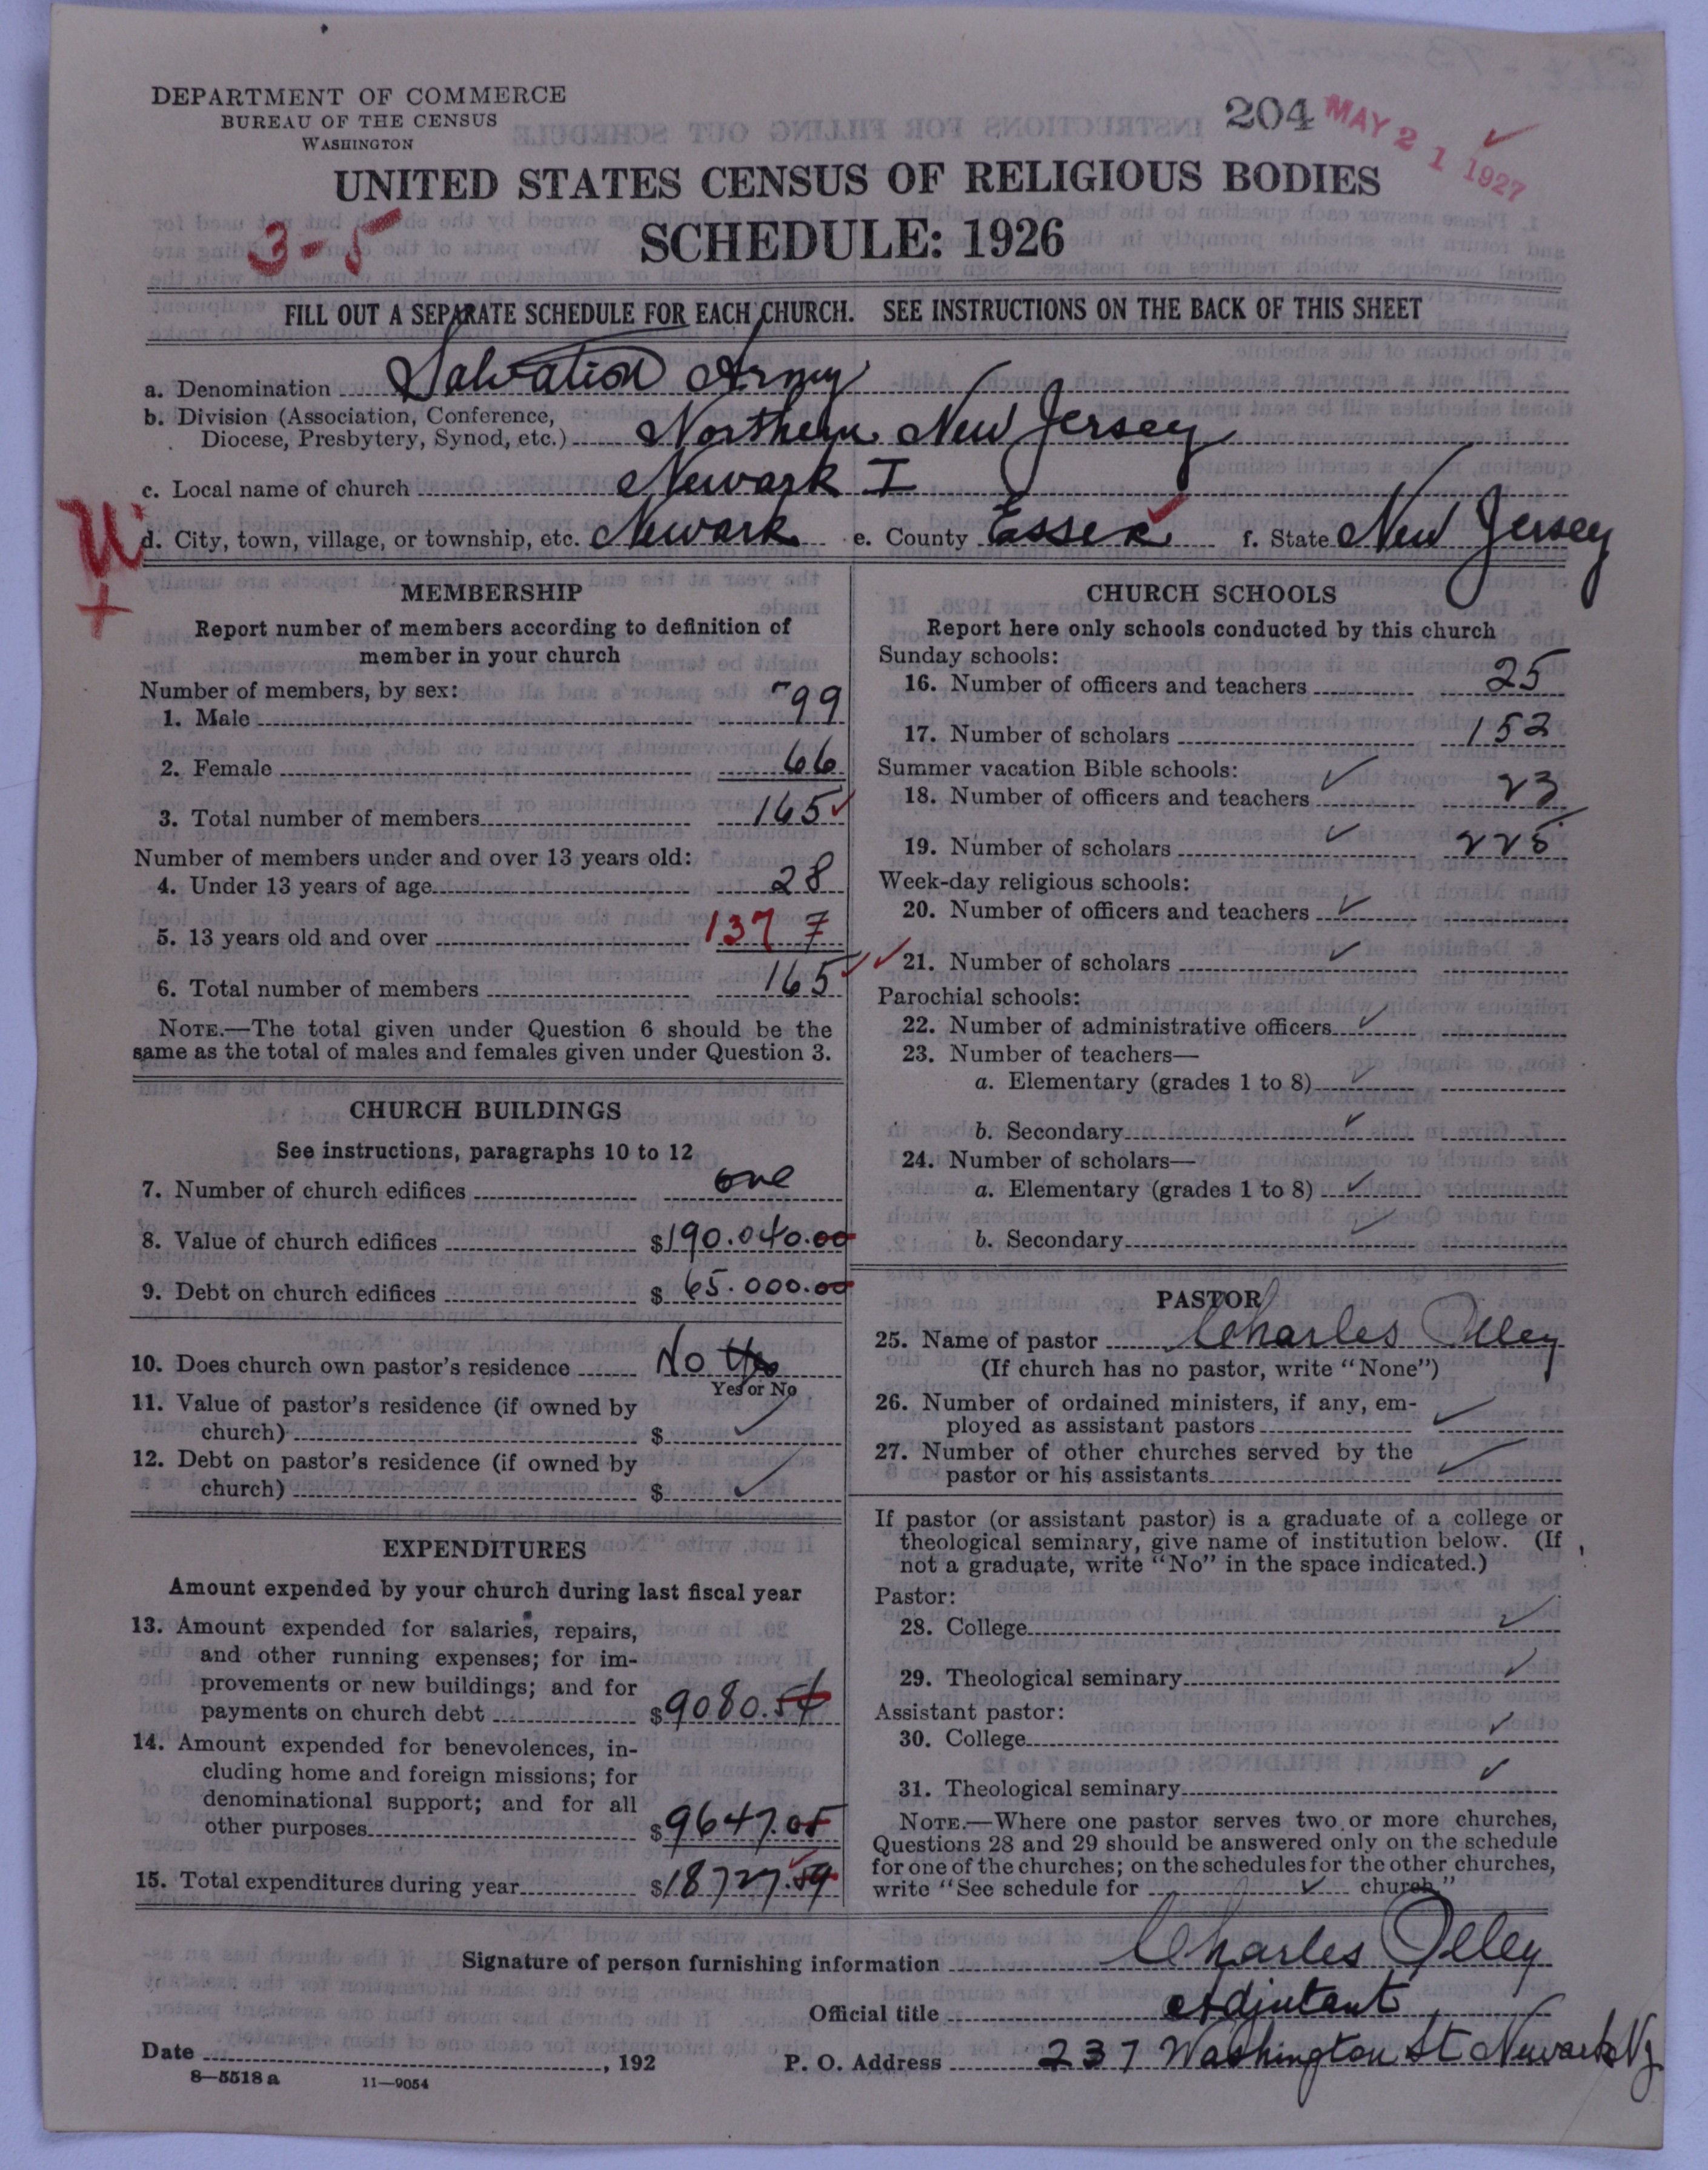 DEPARTMENT OF COMMERCE
BUREAU OF THE CENSUS
WASHINGTON
204
MAY 21 1927
UNITED STATES CENSUS OF RELIGIOUS BODIES
3-5
SCHEDULE: 1926
FILL OUT A SEPARATE SCHEDULE FOR EACH CHURCH. SEE INSTRUCTIONS ON THE BACK OF THIS SHEET
a. Denomination Salvation Army
b. Division (Association, Conference,
Diocese, Presbytery, Synod, etc.) Northern New Jersey
c. Local name of church Newark I
d. City, town, village, or township, etc. Newark e. County Essex f. State New Jersey
MEMBERSHIP
Report number of members according to definition of
member in your church
Number of members, by sex:
1. Male 99
2. Female 66
3. Total number of members 165
Number of members under and over 13 years old:
4. Under 13 years of age 28
5. 13 years old and over 137 7
6. Total number of members 165
NOTE.—The total given under Question 6 should be the
same as the total of males and females given under Question 3.
CHURCH BUILDINGS
See instructions, paragraphs 10 to 12
7. Number of church edifices one
8. Value of church edifices $190.040.00
9. Debt on church edifices $65.000.00
10. Does church own pastor's residence No Yes
Yes or No
11. Value of pastor's residence (if owned by
church) $ ✓
12. Debt on pastor's residence (if owned by
church) $ ✓
EXPENDITURES
Amount expended by your church during last fiscal year
13. Amount expended for salaries, repairs,
and other running expenses; for im-
provements or new buildings; and for
payments on church debt $9080.54
14. Amount expended for benevolences, in-
cluding home and foreign missions; for
denominational support; and for all
other purposes $9647.05
15. Total expenditures during year $18727.59
CHURCH SCHOOLS
Report here only schools conducted by this church
Sunday schools:
16. Number of officers and teachers 25
17. Number of scholars 152
Summer vacation Bible schools:
18. Number of officers and teachers ✓ 23
19. Number of scholars ✓ 225
Week-day religious schools:
20. Number of officers and teachers ✓
21. Number of scholars ✓
Parochial schools:
22. Number of administrative officers ✓
23. Number of teachers—
a. Elementary (grades 1 to 8) ✓
b. Secondary ✓
24. Number of scholars—
a. Elementary (grades 1 to 8) ✓
b. Secondary ✓
PASTOR
25. Name of pastor Charles Olley
(If church has no pastor, write "None")
26. Number of ordained ministers, if any, em-
ployed as assistant pastors ✓
27. Number of other churches served by the
pastor or his assistants ✓
If pastor (or assistant pastor) is a graduate of a college or
theological seminary, give name of institution below. (If
not a graduate, write "No" in the space indicated.)
Pastor:
28. College ✓
29. Theological seminary ✓
Assistant pastor:
30. College ✓
31. Theological seminary ✓
NOTE.—Where one pastor serves two or more churches,
Questions 28 and 29 should be answered only on the schedule
for one of the churches; on the schedules for the other churches,
write "See schedule for ✓ church."
Signature of person furnishing information Charles Olley
Official title Adjutant
Date , 192 P. O. Address 237 Washington St Newark NJ
8—5518 a 11—9054